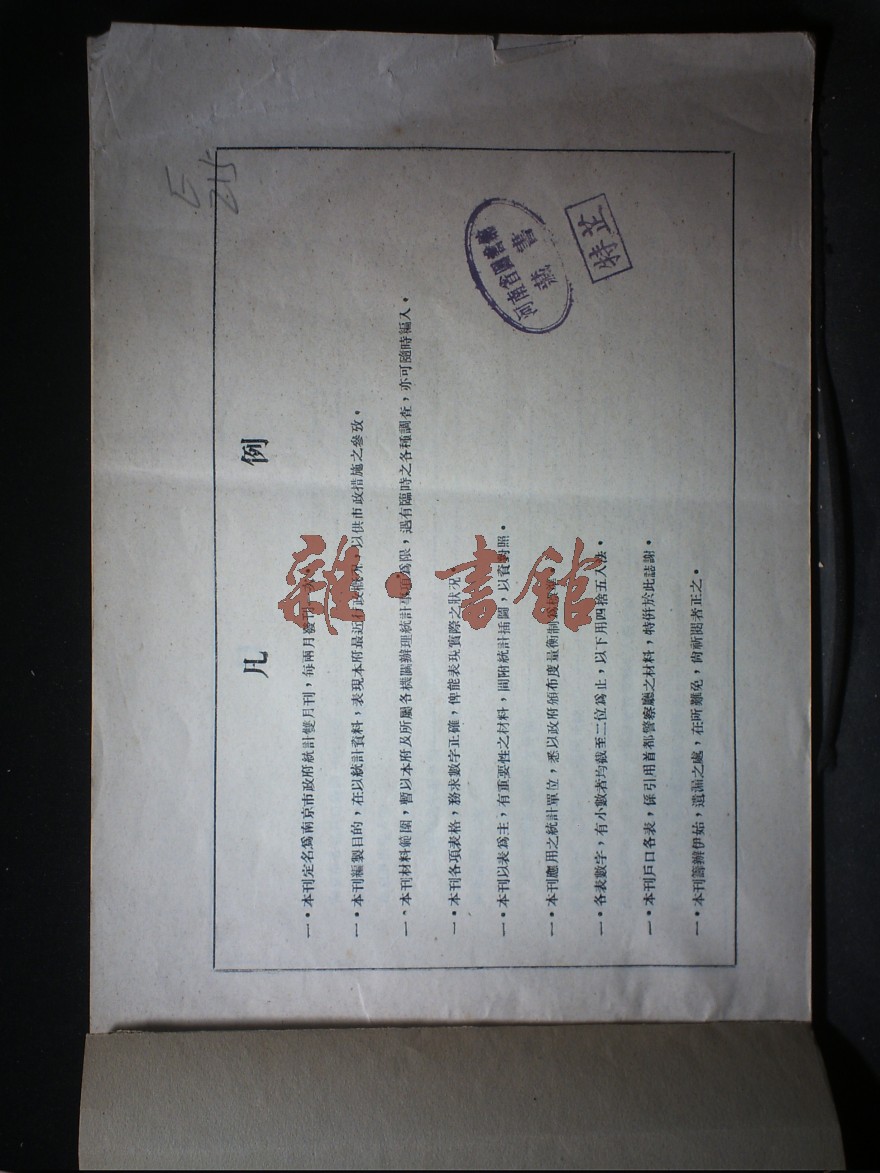 凡例
一•本刊定名爲南京市政府統計雙月刊，每兩月發刊
一•本刊編製目的，在以統計資料，表現本府最近行政狀況，以供市政措施之參攷•
一、本刊材料範圍，暫以本府及所屬各機關辦理統計爲限，遇有臨時之各種調查，亦可隨時編入•
一•本刊各項表格，務求數字正確，俾能表現實際之狀況•
一•本刊以表爲主，有重要性之材料，間附統計插圖，以資對照•
一•本刊應用之統計單位，悉以政府頒布度量衡制
一•各表數字，有小數者均截至二位爲止，以下用四捨五入法•
一•本刊戶口各表，係引用首都警察廳之材料，特併於此誌謝•
一•本刊籌辦伊始，遺漏之處，在所難免，尙祈閱者正之•
河南省圖書館
藏書
E
215
書館